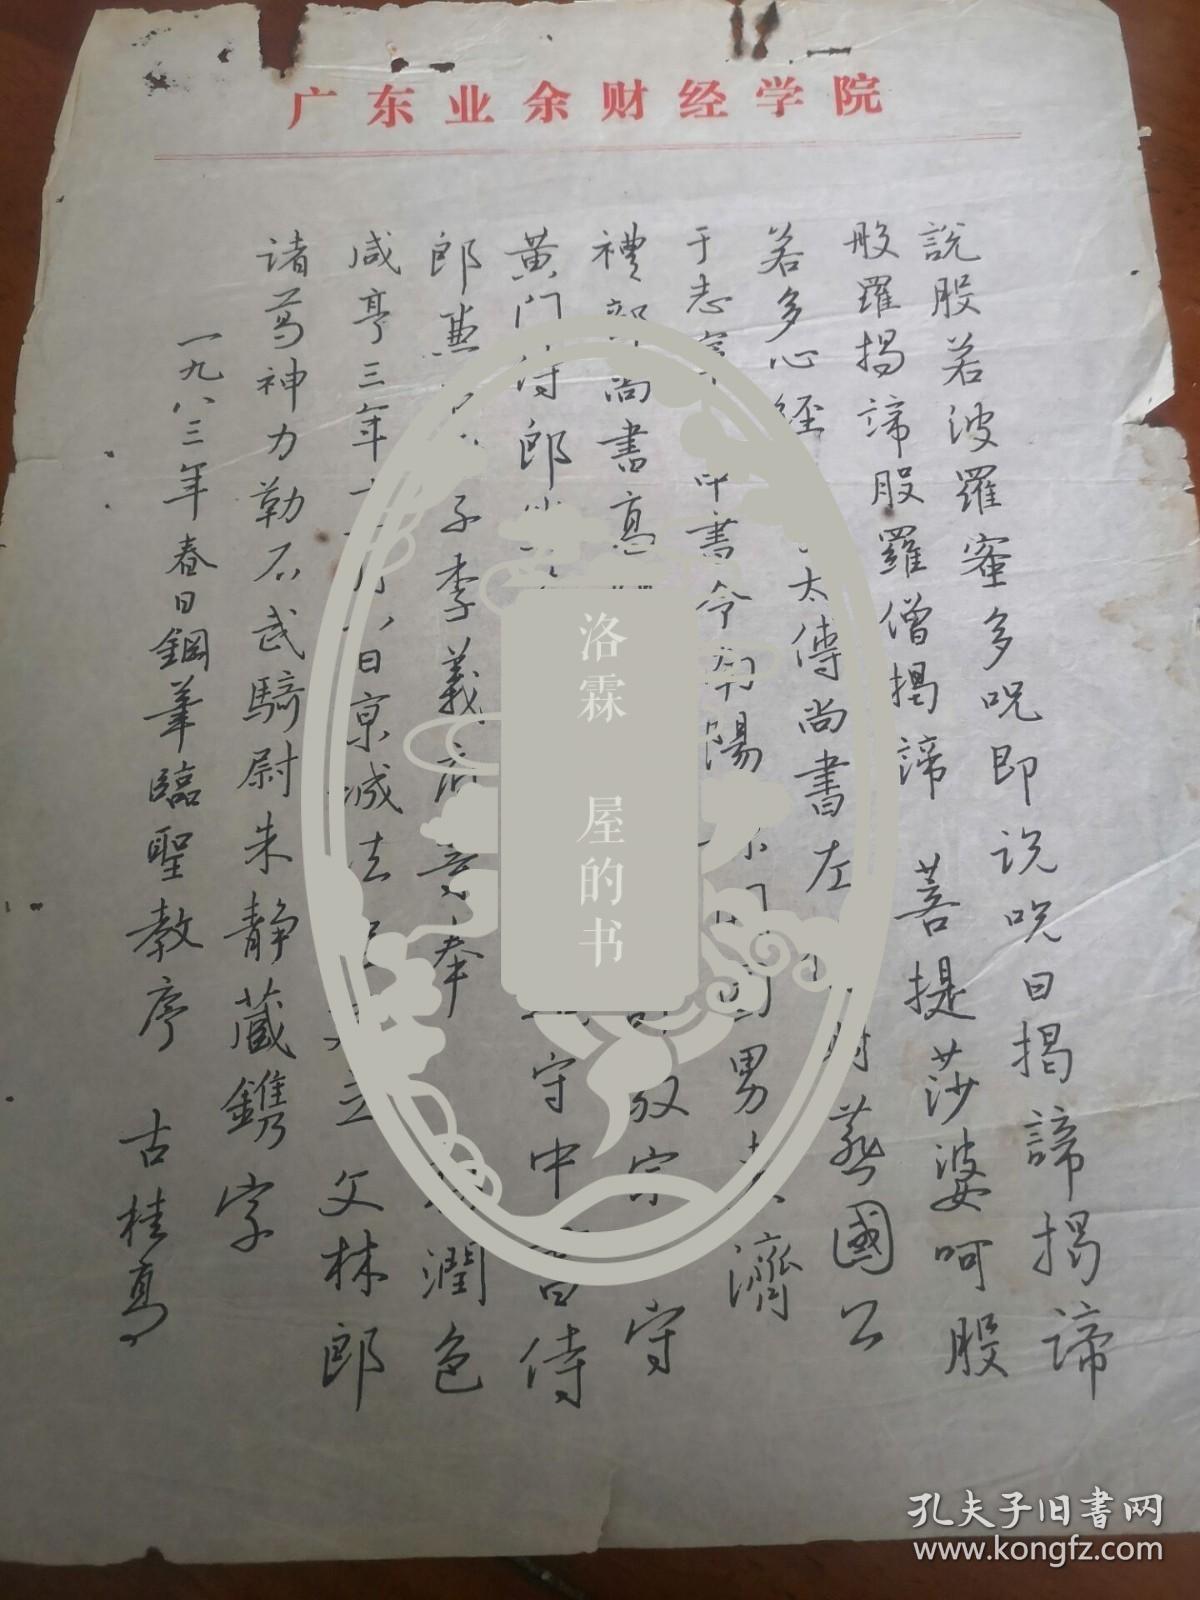 广东业余财经学院
說般若波羅蜜多呪即说呪曰揭諦揭諦
般羅揭諦般羅僧揭諦 菩提莎婆呵般
若多心經 太傅尚書左 燕國公
于志寧 中書令南陽 國男来濟
禮部尚書高 敬宗 守
黄门侍郎 守中書侍
郎 子李義府等奉 潤色
咸亨三年十二月八日京城法 立文林郎
诸葛神力勒石武騎尉朱静藏鐫字
一九八三年春日鋼筆臨聖教序 古桂高
洛霖 屋的书
孔夫子旧书网
www.kongfz.com